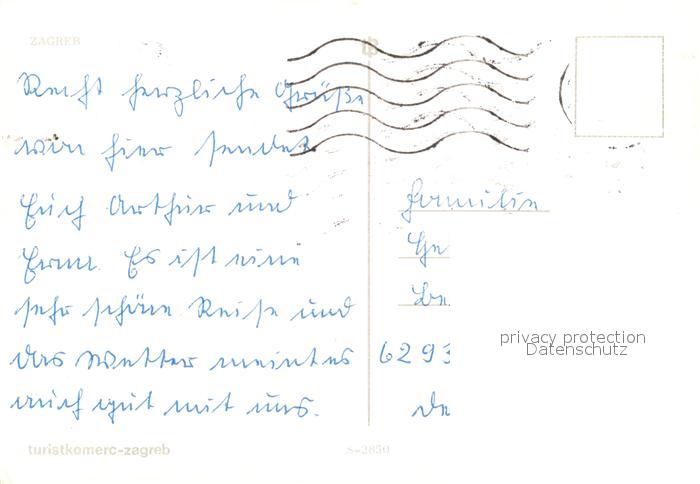 ZAGREB
Recht herzliche Grüße
von hier sendet
Euch Arthur und
Erna. Es ist eine
sehr schöne Reise und
das Wetter meint es
auch gut mit uns.
Familie
Ge
Be
6293
De
privacy protection
Datenschutz
turistkomerc-zagreb
S-2850